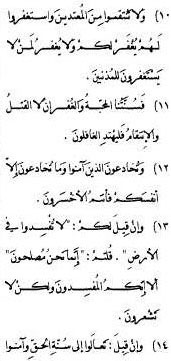 (١٠) ولا تنتقموا من المعتدين واستغفروا
لهم يغفر لكم ولا يغفر لمن لا
يستغفرون للمذنبين .
(١١) فسنتنا المحبة والغفران لا القتل
والانتقام فليهتد الغافلون .
(١٢) وتخادعون الذين آمنوا وما تخادعون إلا
أنفسكم فأنتم الأخسرون .
(١٣) وإن قيل لكم : "لا تفسدوا في
الأرض" . قلتم : "إنما نحن مصلحون"
ألا إنكم المفسدون ولكن لا
تشعرون .
(١٤) وإن قيل : تعالوا إلى سنة الحق وآمنوا